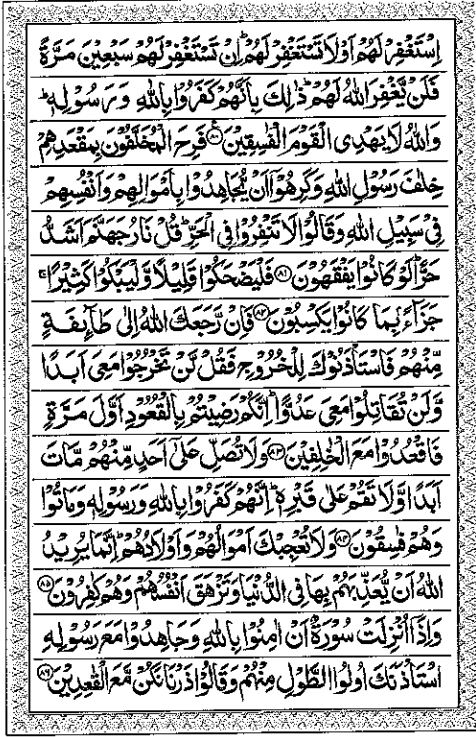 اِسْتَغْفِرْ لَهُمْ اَوْ لَا تَسْتَغْفِرْ لَهُمْ ؕ اِنْ تَسْتَغْفِرْ لَهُمْ سَبْعِيْنَ مَرَّةً
فَلَنْ يَّغْفِرَ اللّٰهُ لَهُمْ ؕ ذٰلِكَ بِاَنَّهُمْ كَفَرُوْا بِاللّٰهِ وَ رَسُوْلِهٖ ؕ
وَاللّٰهُ لَا يَهْدِى الْقَوْمَ الْفٰسِقِيْنَ ﴿۸۰﴾ فَرِحَ الْمُخَلَّفُوْنَ بِمَقْعَدِهِمْ
خِلٰفَ رَسُوْلِ اللّٰهِ وَكَرِهُوْۤا اَنْ يُّجَاهِدُوْا بِاَمْوَالِهِمْ وَاَنْفُسِهِمْ
فِىْ سَبِيْلِ اللّٰهِ وَقَالُوْا لَا تَنْفِرُوْا فِى الْحَرِّ ؕ قُلْ نَارُ جَهَنَّمَ اَشَدُّ
حَرًّا ؕ لَوْ كَانُوْا يَفْقَهُوْنَ ﴿۸۱﴾ فَلْيَضْحَكُوْا قَلِيْلًا وَّلْيَبْكُوْا كَثِيْرًا ۚ
جَزَآءًۢ بِمَا كَانُوْا يَكْسِبُوْنَ ﴿۸۲﴾ فَاِنْ رَّجَعَكَ اللّٰهُ اِلٰى طَآئِفَةٍ
مِّنْهُمْ فَاسْتَاْذَنُوْكَ لِلْخُرُوْجِ فَقُلْ لَّنْ تَخْرُجُوْا مَعِىَ اَبَدًا
وَّلَنْ تُقَاتِلُوْا مَعِىَ عَدُوًّا ؕ اِنَّكُمْ رَضِيْتُمْ بِالْقُعُوْدِ اَوَّلَ مَرَّةٍ
فَاقْعُدُوْا مَعَ الْخٰلِفِيْنَ ﴿۸۳﴾ وَلَا تُصَلِّ عَلٰٓى اَحَدٍ مِّنْهُمْ مَّاتَ
اَبَدًا وَّلَا تَقُمْ عَلٰى قَبْرِهٖ ؕ اِنَّهُمْ كَفَرُوْا بِاللّٰهِ وَرَسُوْلِهٖ وَمَاتُوْا
وَهُمْ فٰسِقُوْنَ ﴿۸۴﴾ وَلَا تُعْجِبْكَ اَمْوَالُهُمْ وَاَوْلَادُهُمْ ؕ اِنَّمَا يُرِيْدُ
اللّٰهُ اَنْ يُّعَذِّبَهُمْ بِهَا فِى الدُّنْيَا وَتَزْهَقَ اَنْفُسُهُمْ وَهُمْ كٰفِرُوْنَ ﴿۸۵﴾
وَاِذَآ اُنْزِلَتْ سُوْرَةٌ اَنْ اٰمِنُوْا بِاللّٰهِ وَجَاهِدُوْا مَعَ رَسُوْلِهِ
اسْتَاْذَنَكَ اُولُوا الطَّوْلِ مِنْهُمْ وَقَالُوْا ذَرْنَا نَكُنْ مَّعَ الْقٰعِدِيْنَ ﴿۸۶﴾